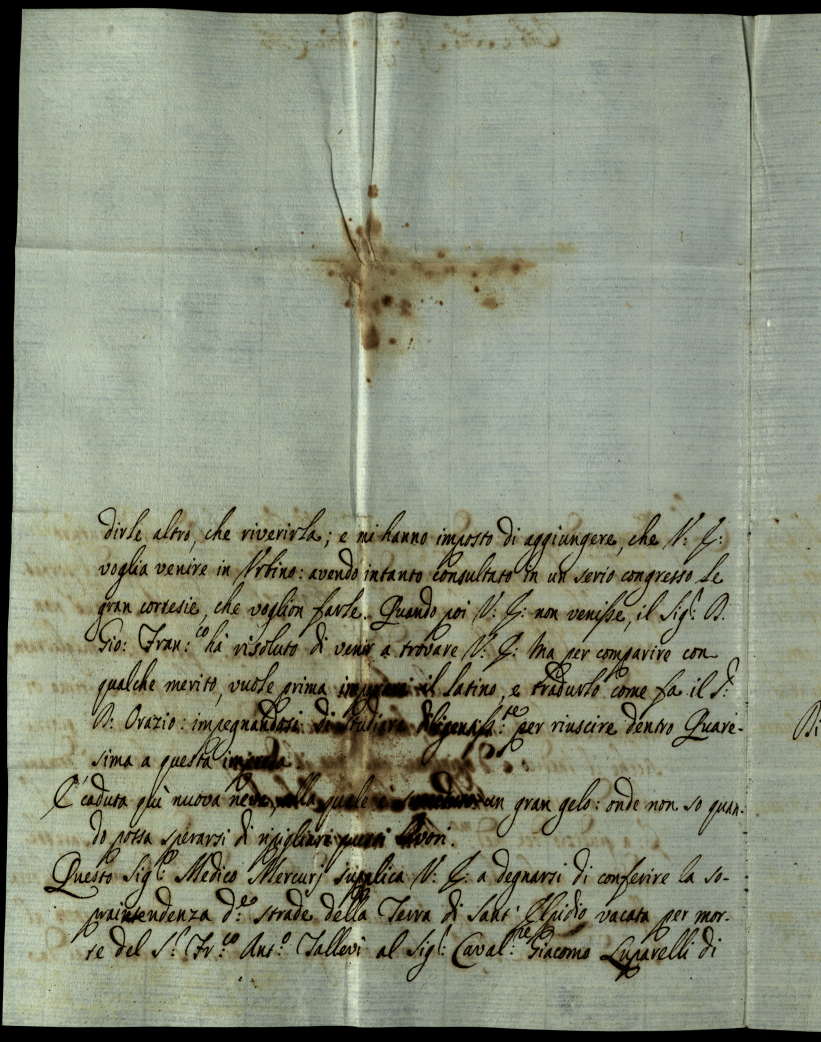 dirle altro, che riverirla; e mi hanno imposto di aggiungere, che V: S:
voglia venire in Urbino: avendo intanto consultato in un serio congresso le
gran cortesie, che voglion farle. Quando poi V: S: non venisse, il Sig.r D.
Gio: Fran:co hà risoluto di venir a trovare V: S: Ma per comparire con
qualche merito, vuole prima il latino, e tradurlo come fa il S.r
D: Orazio: impegnandosi di studiare diligenass:te per riuscire dentro Quare-
sima a questa impresa
E' caduta quì nuova neve, alla quale è un gran gelo: onde non so quan-
do possa sperarsi di ripigliare questi lavori.
Questo Sig.r Medico Mercurj supplica V: S: a degnarsi di conferire la so-
praintendenza d.e strade della Terra di Sant' Elpidio vacata per mor-
te del S.r Fr:co Ant.o Tallevi al Sig.r Caval:re Giacomo Luparelli di
Di